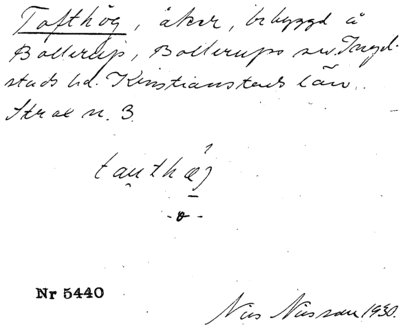 Tofthög, åker, bebyggd å
Bollerup, Bollerups sn. Ingel-
stads hd. Kristianstads län.
Strae n. 3
tau̯thæ̱j
-ɵ-
Nr 5440
Nils Nilsson 1930.